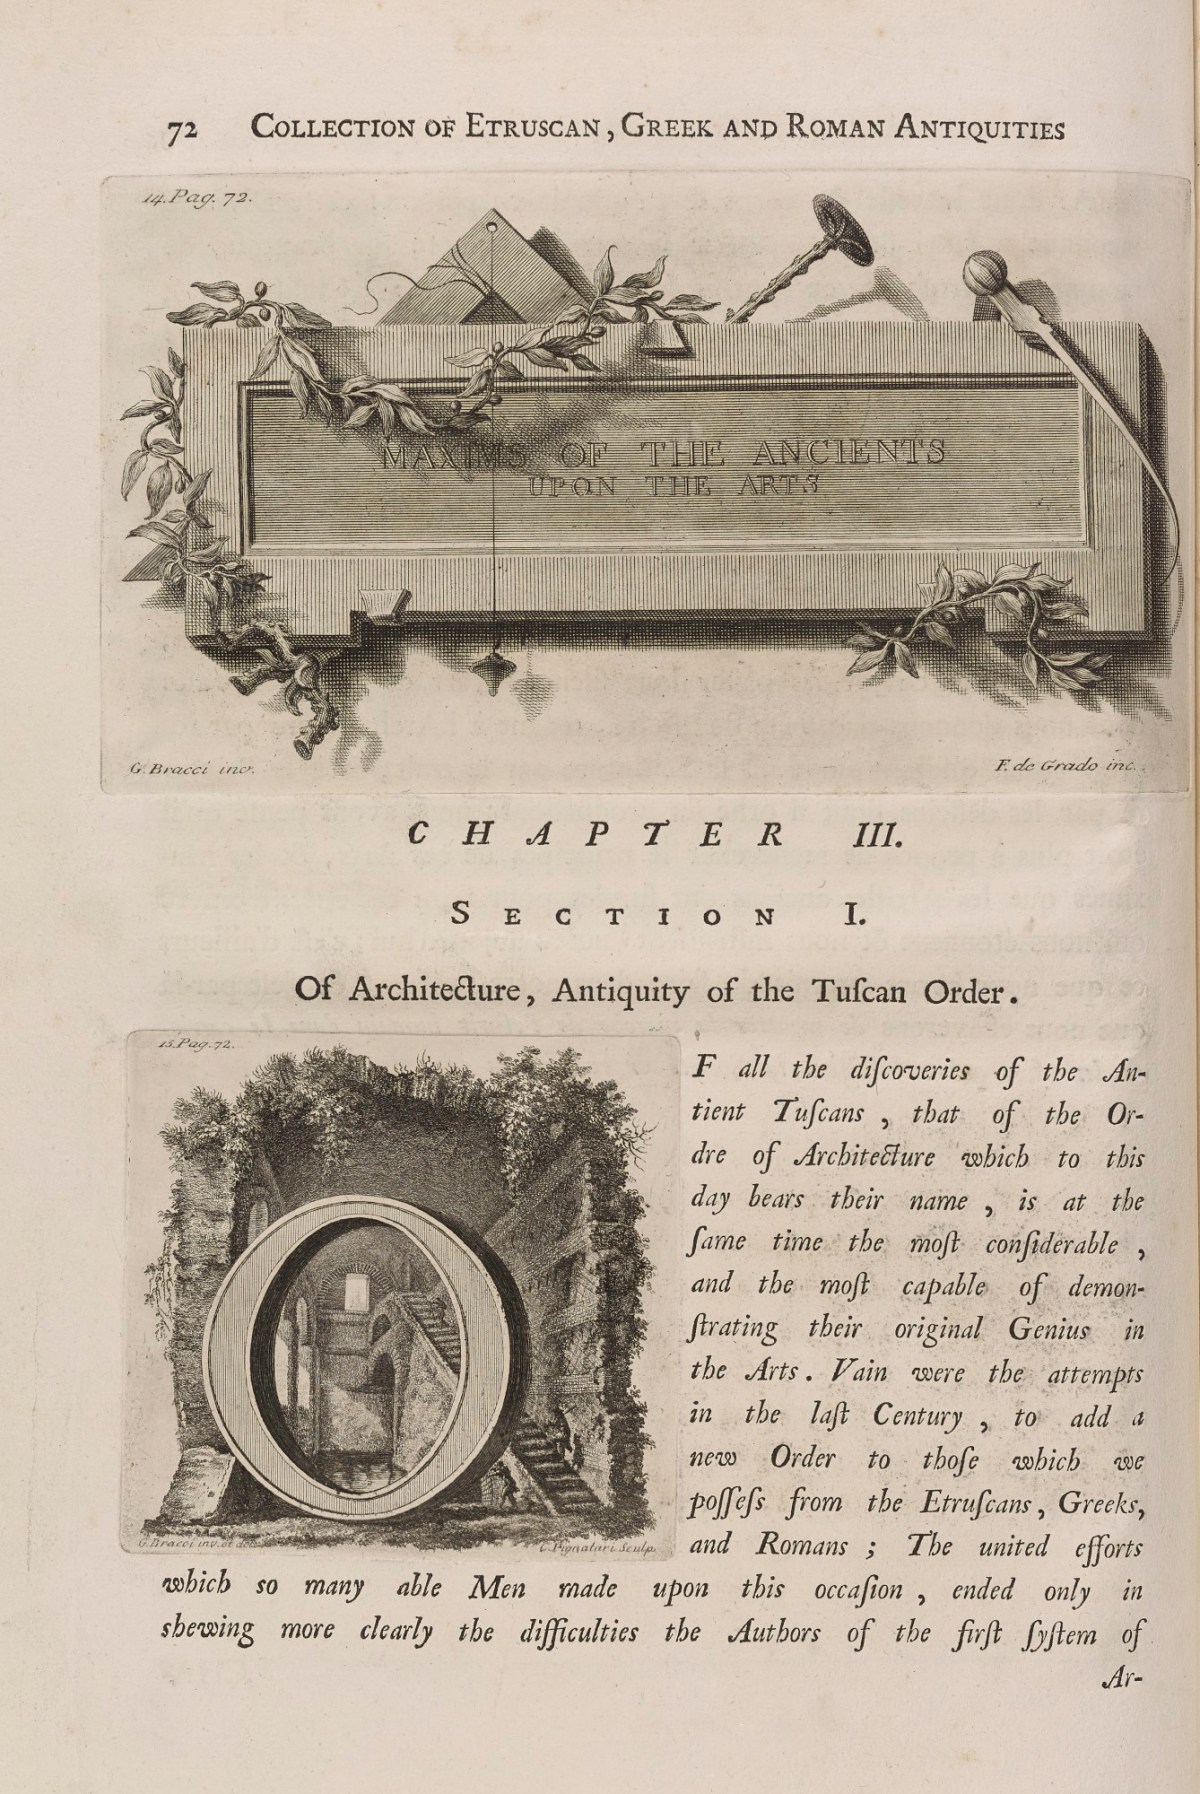 72 COLLECTION OF ETRUSCAN, GREEK AND ROMAN ANTIQUITIES
14. Pag. 72.
MAXIMS OF THE ANCIENTS
UPON THE ARTS
G. Bracci inv.
F. de Grado inc.
CHAPTER III.
SECTION I.
Of Architecture, Antiquity of the Tuſcan Order.
15. Pag. 72.
O
F all the diſcoveries of the An-
tient Tuſcans, that of the Or-
dre of Architecture which to this
day bears their name, is at the
ſame time the moſt conſiderable,
and the moſt capable of demon-
ſtrating their original Genius in
the Arts. Vain were the attempts
in the laſt Century, to add a
new Order to thoſe which we
poſſeſs from the Etruſcans, Greeks,
and Romans; The united efforts
G. Bracci inv. et del.
C. Pignatari Sculp.
which so many able Men made upon this occaſion, ended only in
shewing more clearly the difficulties the Authors of the firſt ſyſtem of
Ar-